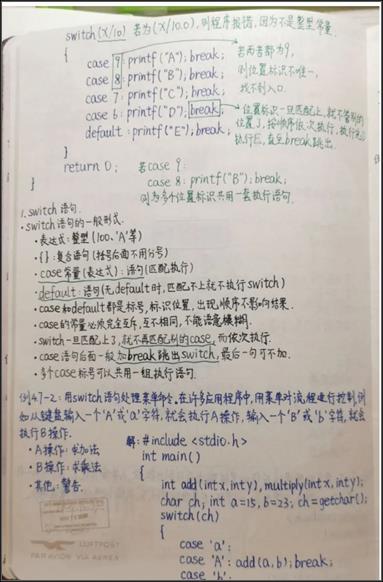 switch(X/10) 若为(X/10.0),则程序报错,因为不是整型常量.
{
case 9: printf("A"); break;
case 8: printf("B"); break;
case 7: printf("C"); break;
case 6: printf("D"); break;
default: printf("E"); break;
}
若两者都为9,
则位置标识不唯一,
找不到入口.
位置标识一旦匹配上,就不管别的
位置了,按顺序依次执行,执行完D
执行E,直至break跳出.
return 0;
}
若case 9:
case 8: printf("B"); break;
则为多个位置标识共用一套执行语句.
1. switch语句.
·switch语句的一般形式.
·表达式:整型(100、'A'等)
·{ }:复合语句(括号后面不用分号)
·case常量(表达式):语句(匹配执行)
·default:语句(无default时,匹配不上就不执行switch)
·case和default都是标号,标识位置,出现顺序不影响结果.
·case的常量必须完全互斥,互不相同,不能语意模糊.
·switch一旦匹配上了,就不再匹配别的case,而依次执行.
·case语句后面一般加break跳出switch,最后一句可不加.
·多个case标号可以共用一组执行语句.
例4-7-2:用switch语句处理菜单命令.在许多应用程序中,用菜单对流程进行控制,例
如从键盘输入一个'A'或'a'字符,就会执行A操作,输入一个'B'或'b'字符,就会
执行B操作.
·A操作:求加法
·B操作:求乘法
·其他:警告.
解:#include <stdio.h>
int main()
{
int add(int x,int y), multiply(int x,int y);
char ch; int a=15, b=23; ch=getchar();
switch(ch)
{
case 'a':
case 'A': add(a,b); break;
case 'b':
LUFTPOST
PAR AVION VIA AEREA